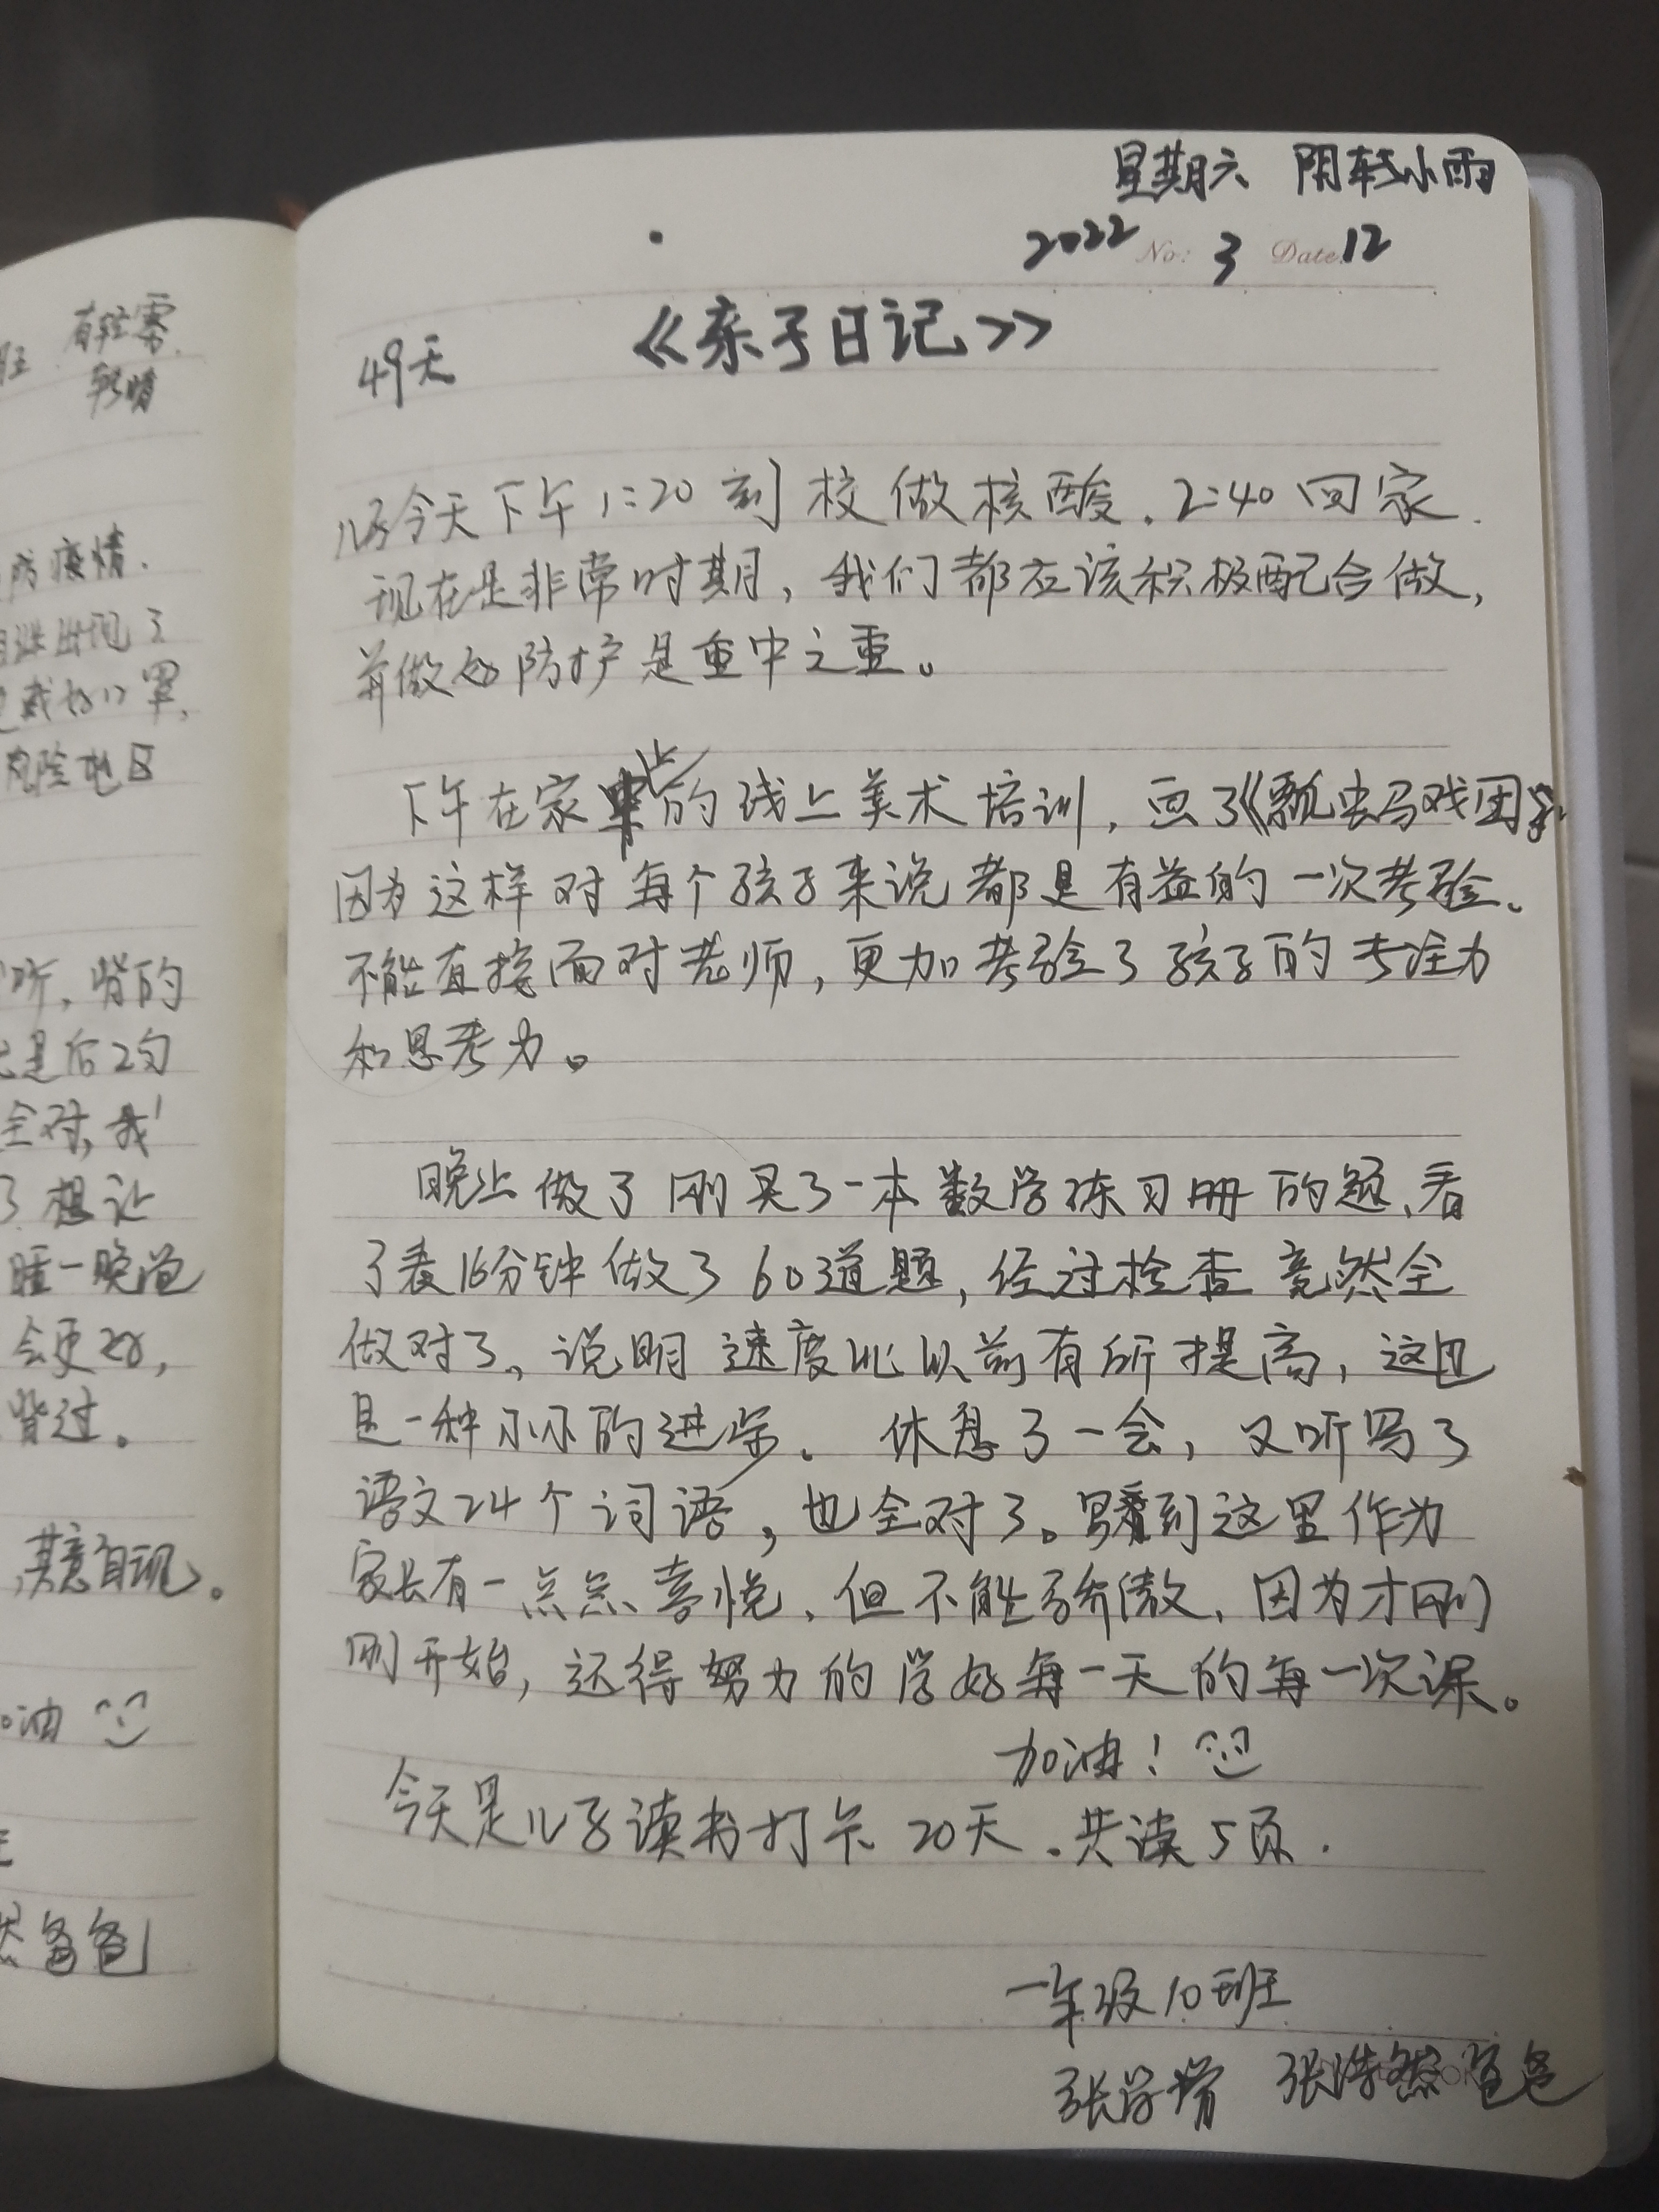 有轻雾
转晴
防疫情.
出现了
戴好口罩,
风险地区
听,背的
是后2句
全对,我
了想让
睡一晚
会更好,
背过。
其意自现。
加油
爸爸
星期六 阴转小雨
2022 No: 3 Date: 12
49天 《亲子日记>>
儿子今天下午1:20到校做核酸.2:40回家.
现在是非常时期,我们都应该积极配合做,
并做好防护是重中之重。
下午在家上的线上美术培训,画了《瓢虫马戏团》
因为这样对每个孩子来说都是有益的一次考验。
不能直接面对老师,更加考验了孩子的专注力
和思考力。
晚上做了刚买了一本数学练习册的题、看
了表16分钟做了60道题,经过检查竟然全
做对了。说明速度比以前有所提高,这也
是一种小小的进步。休息了一会,又听写了
语文24个词语,也全对了。写到这里作为
家长有一点点喜悦、但不能骄傲、因为才刚
刚开始,还得努力的学好每一天的每一次课。
加油!
今天是儿子读书打卡20天.共读5页.
一年级10班
张浩然爸爸